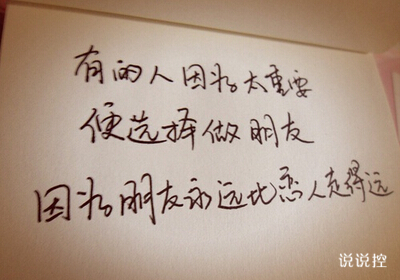 有的人因为太重要
便选择做朋友
因为朋友永远比恋人走得远
说说控